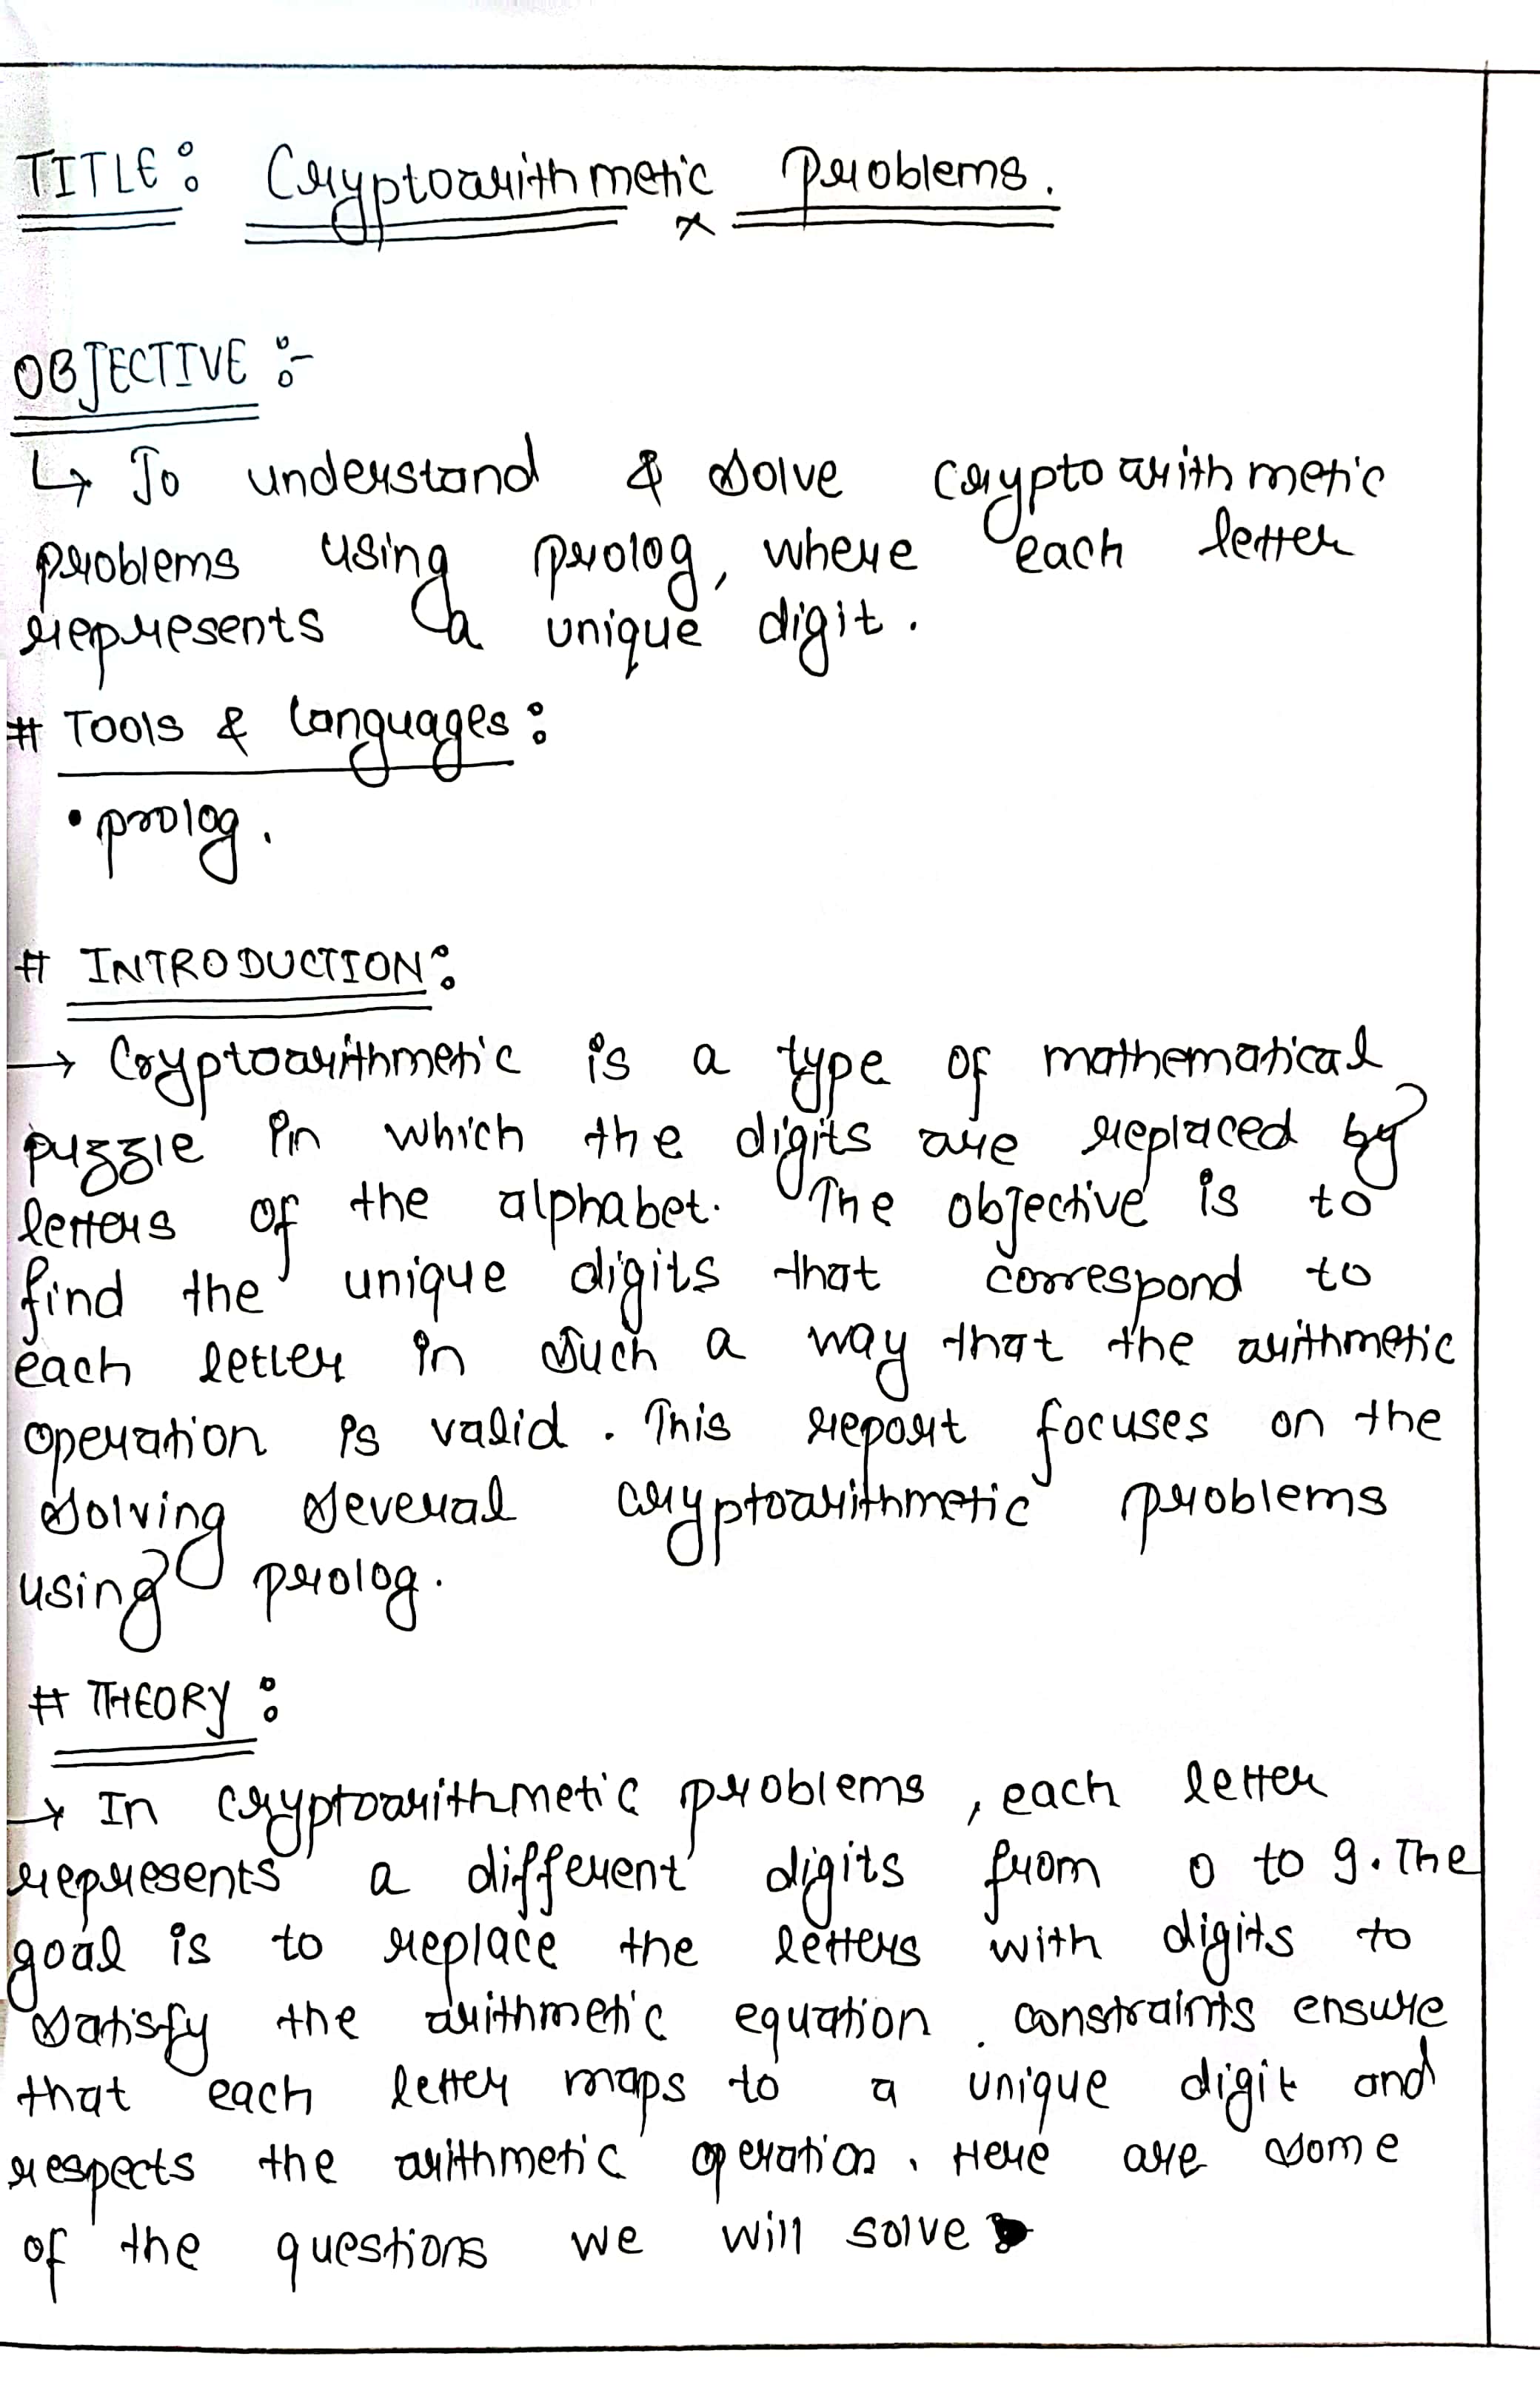 TITLE: Cryptoarithmetic Problems.
x
OBJECTIVE :-
↳ To understand & solve cryptoarithmetic
problems using prolog, where each letter
represents a unique digit.
# Tools & Languages:
• prolog.
# INTRODUCTION:
→ Cryptoarithmetic is a type of mathematical
puzzle in which the digits are replaced by
letters of the alphabet. The objective is to
find the unique digits that correspond to
each letter in such a way that the arithmetic
operation is valid. This report focuses on the
solving several cryptoarithmetic problems
using prolog.
# THEORY:
→ In cryptoarithmetic problems, each letter
represents a different digits from 0 to 9. The
goal is to replace the letters with digits to
satisfy the arithmetic equation. constraints ensure
that each letter maps to a unique digit and
respects the arithmetic operation. Here are some
of the questions we will solve